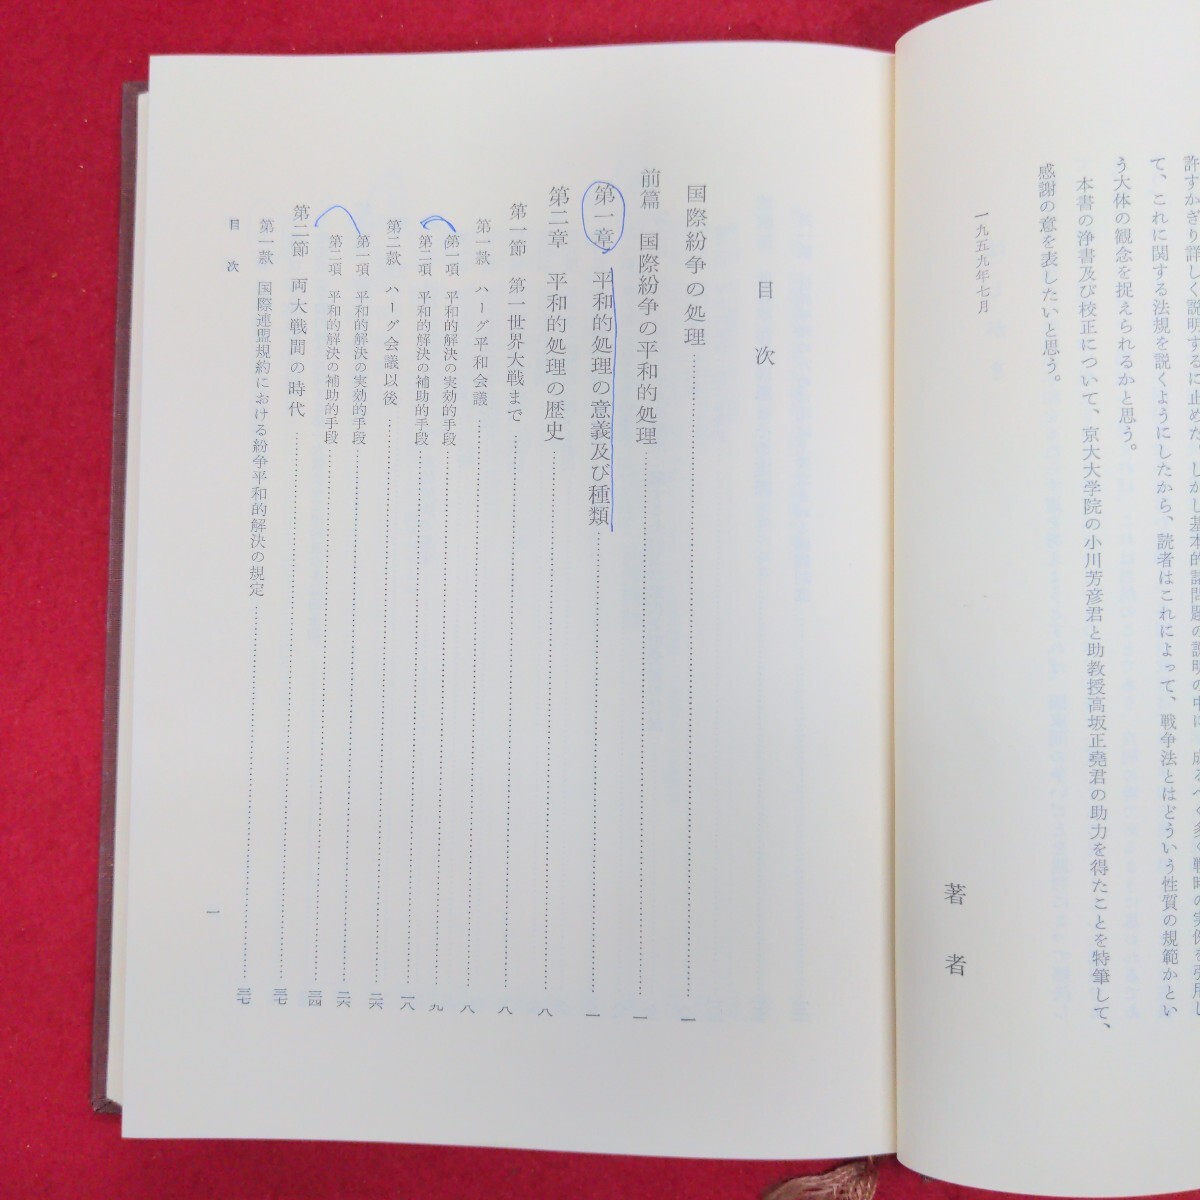 許すかぎり詳しく説明するに止めた。しかし基本的諸問題の説明の中に、成るべく多く戦時の実例を引用し
て、これに関する法規を説くようにしたから、読者はこれによって、戦争法とはどういう性質の規範かとい
う大体の観念を捉えられるかと思う。
本書の浄書及び校正について、京大大学院の小川芳彦君と助教授高坂正堯君の助力を得たことを特筆して、
感謝の意を表したいと思う。
一九五九年七月
著者
目次
国際紛争の処理 一
前篇 国際紛争の平和的処理 一
第一章 平和的処理の意義及び種類 一
第二章 平和的処理の歴史 八
第一節 第一世界大戦まで 八
第一款 ハーグ平和会議 八
第一項 平和的解決の実効的手段 九
第二項 平和的解決の補助的手段 一八
第二款 ハーグ会議以後 二六
第一項 平和的解決の実効的手段 二六
第二項 平和的解決の補助的手段 三四
第二節 両大戦間の時代 三七
第一款 国際連盟規約における紛争平和的解決の規定 三七
目次
一